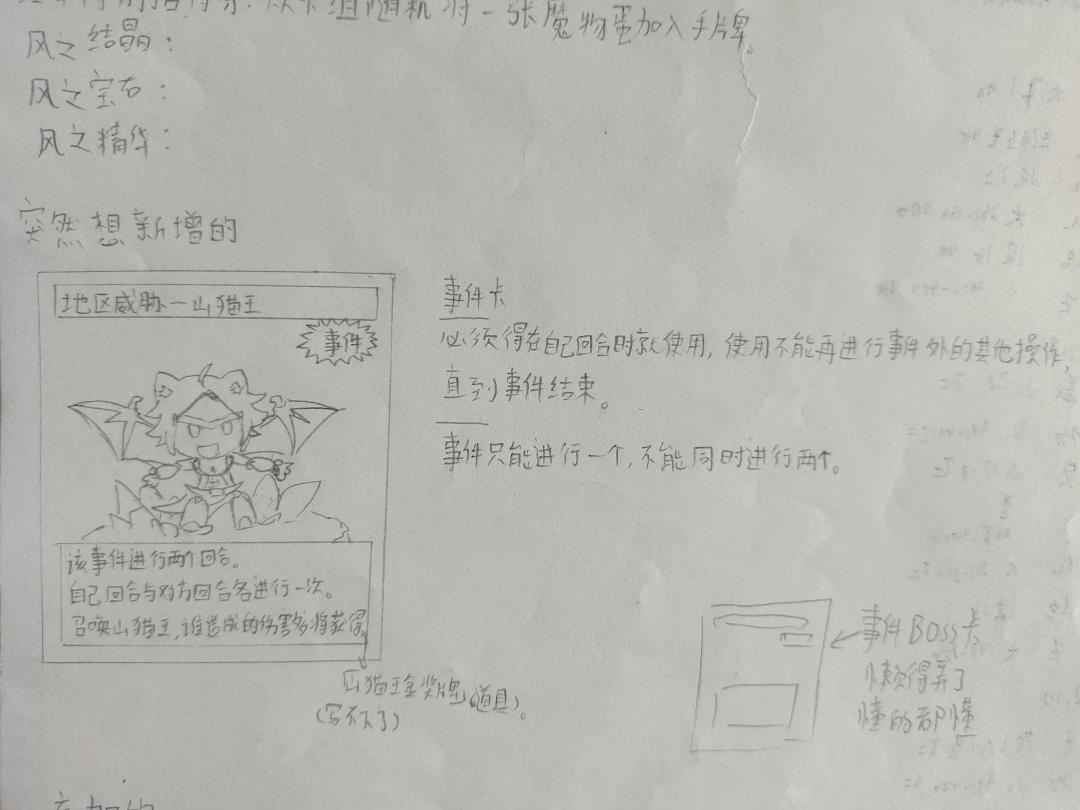 从卡组随机将一张魔物蛋加入手牌。
风之结晶：
风之宝石：
风之精华：
突然想新增的
地区威胁一山猫王
事件
该事件进行两个回合。
自己回合与对方回合各进行一次。
召唤山猫王，谁造成的伤害多将获得
山猫王金奖牌（道具）。
（写不下了）
事件卡
必须得在自己回合时就使用，使用不能再进行事件外的其他操作，
直到事件结束。
事件只能进行一个，不能同时进行两个。
事件BOSS卡
懒得弄了
懂的都懂